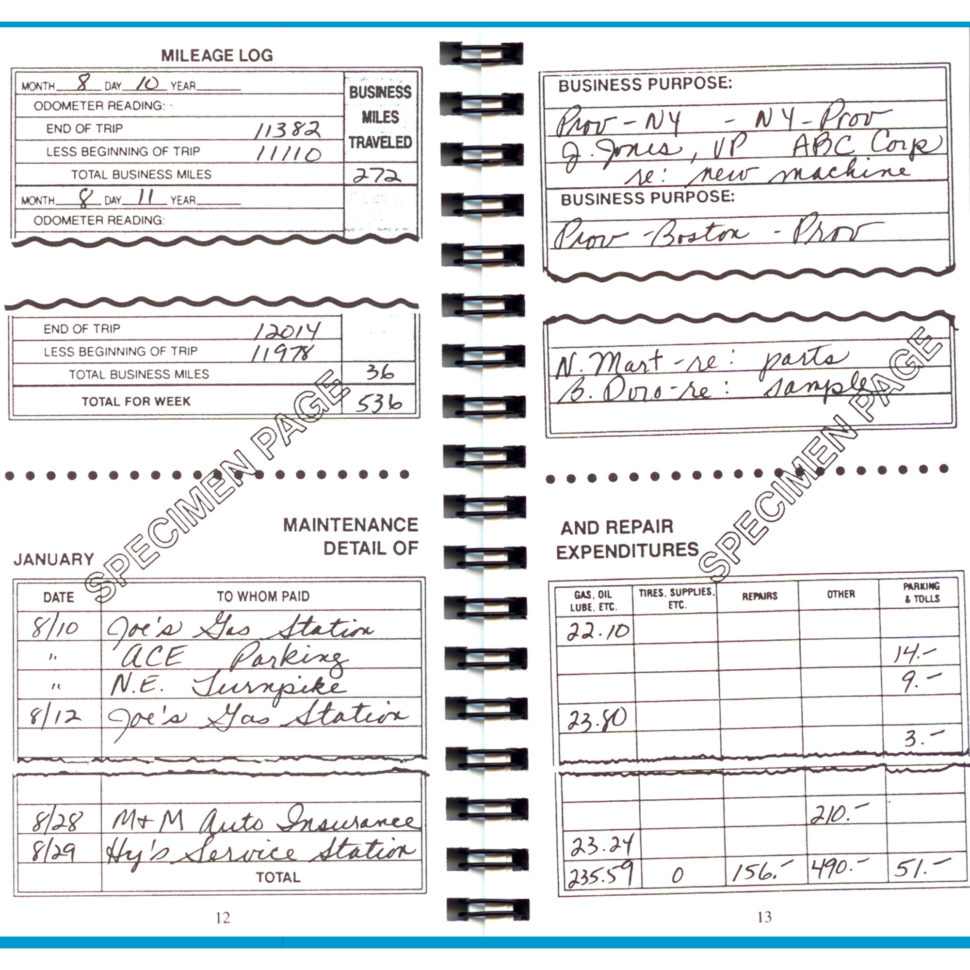 MILEAGE LOG
MONTH 8 DAY 10 YEAR
BUSINESS MILES TRAVELED
ODOMETER READING:
END OF TRIP 11382
LESS BEGINNING OF TRIP 11110
TOTAL BUSINESS MILES 272
MONTH 8 DAY 11 YEAR
ODOMETER READING:
END OF TRIP 12014
LESS BEGINNING OF TRIP 11978
TOTAL BUSINESS MILES 36
TOTAL FOR WEEK 536
BUSINESS PURPOSE:
Prov - NY - NY - Prov
J. Jones, VP ABC Corp
re: new machine
BUSINESS PURPOSE:
Prov - Boston - Prov
N. Mart - re: parts
B. Doro - re: sample
SPECIMEN PAGE
SPECIMEN PAGE
MAINTENANCE AND REPAIR
JANUARY DETAIL OF EXPENDITURES
DATE TO WHOM PAID GAS, OIL LUBE, ETC. TIRES, SUPPLIES, ETC. REPAIRS OTHER PARKING & TOLLS
8/10 Joe's Gas Station 22.10
" ACE Parking 14.-
" N.E. Turnpike 9.-
8/12 Joe's Gas Station 23.80
3.-
8/28 M+M Auto Insurance 210.-
8/29 Hy's Service Station 23.24
TOTAL 235.59 0 156.- 490.- 51.-
12
13